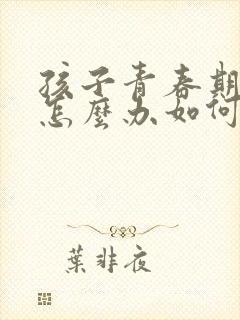 孩子青春期
怎麼办如何
葉非夜